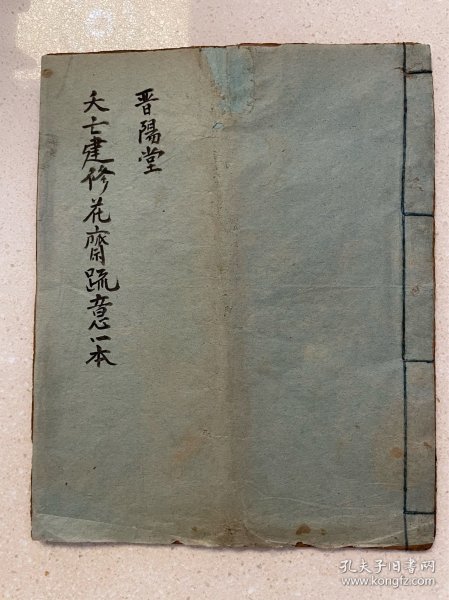 晋陽堂
夭亡建修花齋疏意一本
孔夫子旧书网
www.kongfz.com